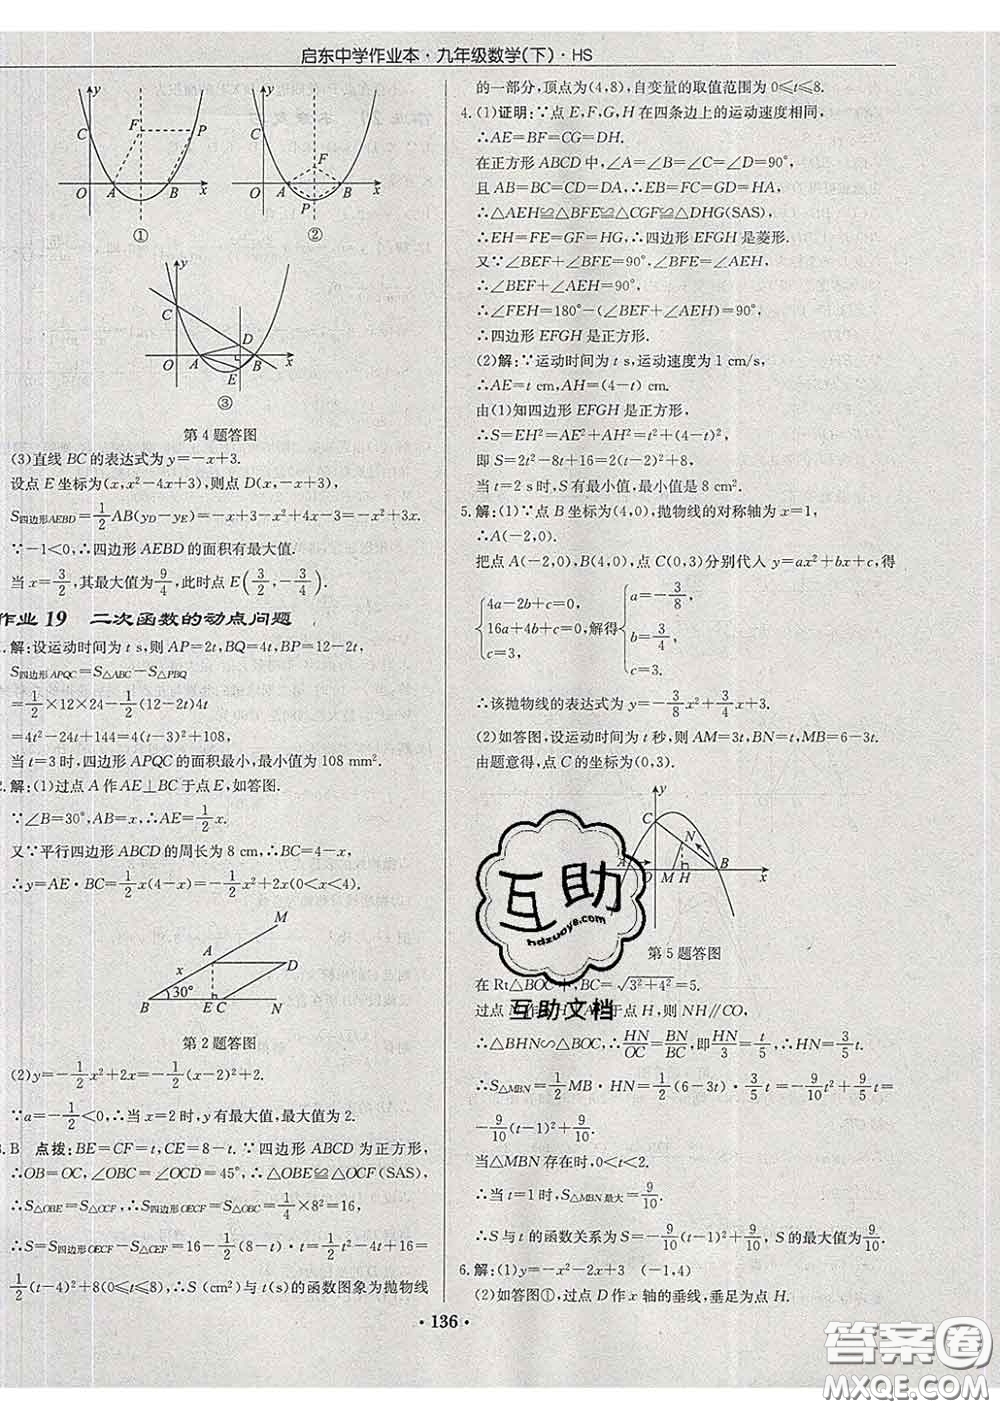 启东中学作业本·九年级数学(下)·HS
y
C
F
P
O
A
B
x
①
y
C
F
O
A
B
P
x
②
y
C
D
O
A
B
E
x
③
第4题答图
(3)直线BC的表达式为y=-x+3.
设点E坐标为(x,x²-4x+3),则点D(x,-x+3),
S四边形AEBD=1/2AB(yD-yE)=-x+3-x²+4x-3=-x²+3x.
∵-1<0,∴四边形AEBD的面积有最大值.
当x=3/2,其最大值为9/4,此时点E(3/2,-3/4).
作业19 二次函数的动点问题
解:设运动时间为t s,则AP=2t,BQ=4t,BP=12-2t,
S四边形APQC=S△ABC-S△PBQ
=1/2×12×24-1/2(12-2t)4t
=4t²-24t+144=4(t-3)²+108,
当t=3时,四边形APQC的面积最小,最小值为108 mm².
2.解:(1)过点A作AE⊥BC于点E,如答图.
∵∠B=30°,AB=x,∴AE=1/2x.
又∵平行四边形ABCD的周长为8 cm,∴BC=4-x,
∴y=AE·BC=1/2x(4-x)=-1/2x²+2x(0<x<4).
M
A
D
x
30°
B
E
C
N
第2题答图
(2)y=-1/2x²+2x=-1/2(x-2)²+2.
∵a=-1/2<0,∴当x=2时,y有最大值,最大值为2.
3.B 点拨:BE=CF=t,CE=8-t.∵四边形ABCD为正方形,
∴OB=OC,∠OBC=∠OCD=45°,∴△OBE≌△OCF(SAS),
∴S△OBE=S△OCF,∴S四边形OECF=S△OBC=1/4×8²=16,
∴S=S四边形OECF-S△CEF=16-1/2(8-t)·t=1/2t²-4t+16=
1/2(t-4)²+8(0≤t≤8),∴S(cm²)与t(s)的函数图象为抛物线
的一部分,顶点为(4,8),自变量的取值范围为0≤t≤8.
4.(1)证明:∵点E,F,G,H在四条边上的运动速度相同,
∴AE=BF=CG=DH.
在正方形ABCD中,∠A=∠B=∠C=∠D=90°,
且AB=BC=CD=DA,∴EB=FC=GD=HA,
∴△AEH≌△BFE≌△CGF≌△DHG(SAS)
∴EH=FE=GF=HG,∴四边形EFGH是菱形.
又∵∠BEF+∠BFE=90°,∠BFE=∠AEH,
∴∠BEF+∠AEH=90°,
∴∠FEH=180°-(∠BEF+∠AEH)=90°,
∴四边形EFGH是正方形.
(2)解:∵运动时间为t s,运动速度为1 cm/s,
∴AE=t cm,AH=(4-t) cm.
由(1)知四边形EFGH是正方形,
∴S=EH²=AE²+AH²=t²+(4-t)²,
即S=2t²-8t+16=2(t-2)²+8,
当t=2 s时,S有最小值,最小值是8 cm².
5.解:(1)∵点B坐标为(4,0),抛物线的对称轴为x=1,
∴A(-2,0).
把点A(-2,0),B(4,0),点C(0,3)分别代人y=ax²+bx+c,得
{4a-2b+c=0, 16a+4b+c=0, c=3, 解得{a=-3/8, b=3/4, c=3,
∴该抛物线的表达式为y=-3/8x²+3/4x+3.
(2)如答图,设运动时间为t秒,则AM=3t,BN=t,MB=6-3t.
由题意得,点C的坐标为(0,3).
y
C
N
A
O
M
H
B
x
第5题答图
在Rt△BOC中,BC=√3²+4²=5.
过点N作NH⊥AB于点H,则NH∥CO,
∴△BHN∽△BOC,∴HN/OC=BN/BC,即HN/3=t/5,∴HN=3/5t.
∴S△MBN=1/2MB·HN=1/2(6-3t)·3/5t=-9/10t²+9/5t=
-9/10(t-1)²+9/10.
当△MBN存在时,0<t<2.
∴当t=1时,S△MBN最大=9/10.
∴S与t的函数关系为S=-9/10(t-1)²+9/10,S的最大值为9/10.
6.解:(1)y=-x²-2x+3 (-1,4)
(2)如答图①,过点D作x轴的垂线,垂足为点H.
·136·
互助
hdzuoye.com
互助文档
答案圈
MXQE.COM